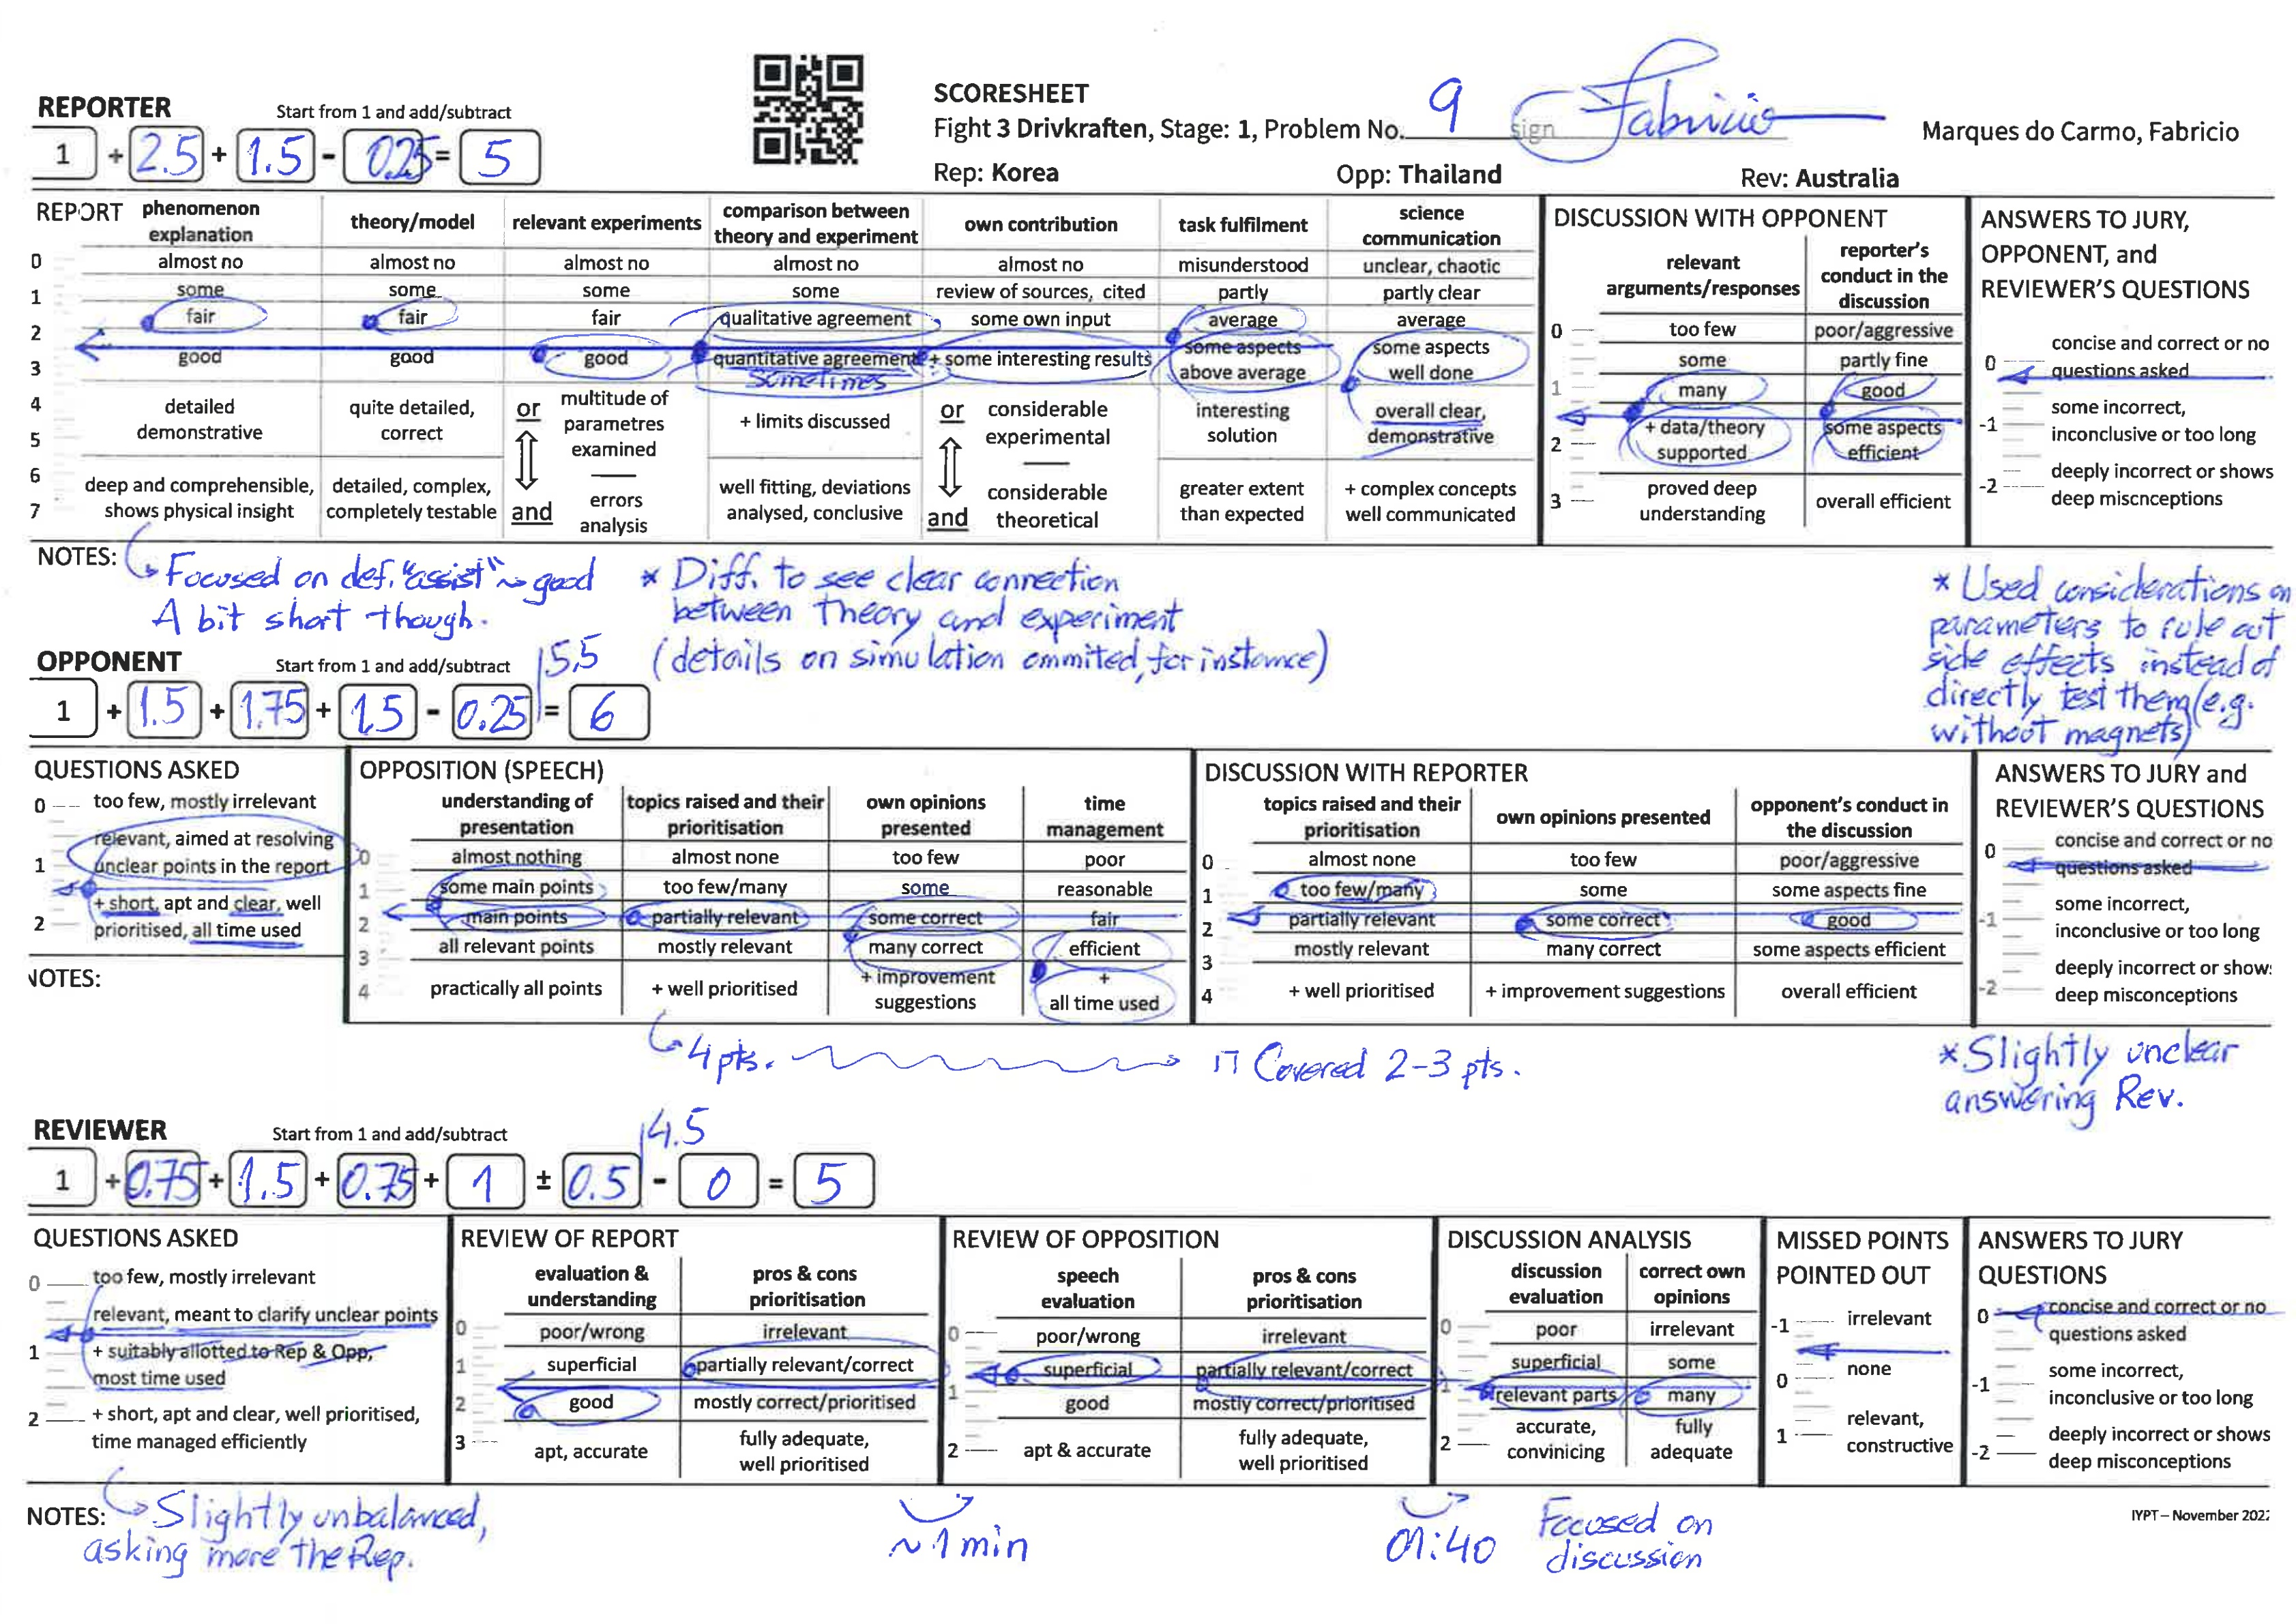 REPORTER Start from 1 and add/subtract
1 + 2.5 + 1.5 - 0.25 = 5
SCORESHEET
Fight 3 Drivkraften, Stage: 1, Problem No. 9 sign Fabricio Marques do Carmo, Fabricio
Rep: Korea Opp: Thailand Rev: Australia
REPORT
phenomenon explanation
theory/model
relevant experiments
comparison between theory and experiment
own contribution
task fulfilment
science communication
0 almost no almost no almost no almost no almost no misunderstood unclear, chaotic
1 some some some some review of sources, cited partly partly clear
2 fair fair fair qualitative agreement some own input average average
3 good good good quantitative agreement + some interesting results some aspects above average some aspects well done
sometimes
4 5 detailed demonstrative quite detailed, correct or multitude of parametres examined + limits discussed or considerable experimental interesting solution overall clear, demonstrative
6 7 deep and comprehensible, shows physical insight detailed, complex, completely testable and errors analysis well fitting, deviations analysed, conclusive and considerable theoretical greater extent than expected + complex concepts well communicated
DISCUSSION WITH OPPONENT
relevant arguments/responses
reporter's conduct in the discussion
0 too few poor/aggressive
some partly fine
1 many good
2 + data/theory supported some aspects efficient
3 proved deep understanding overall efficient
ANSWERS TO JURY, OPPONENT, and REVIEWER'S QUESTIONS
0 concise and correct or no questions asked
-1 some incorrect, inconclusive or too long
-2 deeply incorrect or shows deep miscnceptions
NOTES:
Focused on def. "assist" ~ good
A bit short though.
* Diff. to see clear connection
between theory and experiment
(details on simulation ommited, for instance)
* Used considerations on
parameters to rule out
side effects instead of
directly test them (e.g.
without magnets)
OPPONENT Start from 1 and add/subtract 5,5
1 + 1.5 + 1.75 + 1.5 - 0.25 = 6
QUESTIONS ASKED
0 too few, mostly irrelevant
1 relevant, aimed at resolving unclear points in the report
2 + short, apt and clear, well prioritised, all time used
NOTES:
OPPOSITION (SPEECH)
understanding of presentation
topics raised and their prioritisation
own opinions presented
time management
0 almost nothing almost none too few poor
1 some main points too few/many some reasonable
2 main points partially relevant some correct fair
3 all relevant points mostly relevant many correct efficient
4 practically all points + well prioritised + improvement suggestions + all time used
DISCUSSION WITH REPORTER
topics raised and their prioritisation
own opinions presented
opponent's conduct in the discussion
0 almost none too few poor/aggressive
1 too few/many some some aspects fine
2 partially relevant some correct good
3 mostly relevant many correct some aspects efficient
4 + well prioritised + improvement suggestions overall efficient
ANSWERS TO JURY and REVIEWER'S QUESTIONS
0 concise and correct or no questions asked
-1 some incorrect, inconclusive or too long
-2 deeply incorrect or show: deep misconceptions
4 pts. Covered 2-3 pts.
* Slightly unclear
answering Rev.
REVIEWER Start from 1 and add/subtract 4.5
1 + 0.75 + 1.5 + 0.75 + 1 ± 0.5 - 0 = 5
QUESTIONS ASKED
0 too few, mostly irrelevant
relevant, meant to clarify unclear points
1 + suitably allotted to Rep & Opp, most time used
2 + short, apt and clear, well prioritised, time managed efficiently
REVIEW OF REPORT
evaluation & understanding
pros & cons prioritisation
0 poor/wrong irrelevant
1 superficial partially relevant/correct
2 good mostly correct/prioritised
3 apt, accurate fully adequate, well prioritised
REVIEW OF OPPOSITION
speech evaluation
pros & cons prioritisation
0 poor/wrong irrelevant
superficial partially relevant/correct
1 good mostly correct/prioritised
2 apt & accurate fully adequate, well prioritised
DISCUSSION ANALYSIS
discussion evaluation
correct own opinions
0 poor irrelevant
superficial some
1 relevant parts many
2 accurate, convinicing fully adequate
MISSED POINTS POINTED OUT
-1 irrelevant
0 none
1 relevant, constructive
ANSWERS TO JURY QUESTIONS
0 concise and correct or no questions asked
-1 some incorrect, inconclusive or too long
-2 deeply incorrect or shows deep misconceptions
NOTES:
Slightly unbalanced,
asking more the Rep.
~1 min
01:40
Focused on
discussion
IYPT – November 202